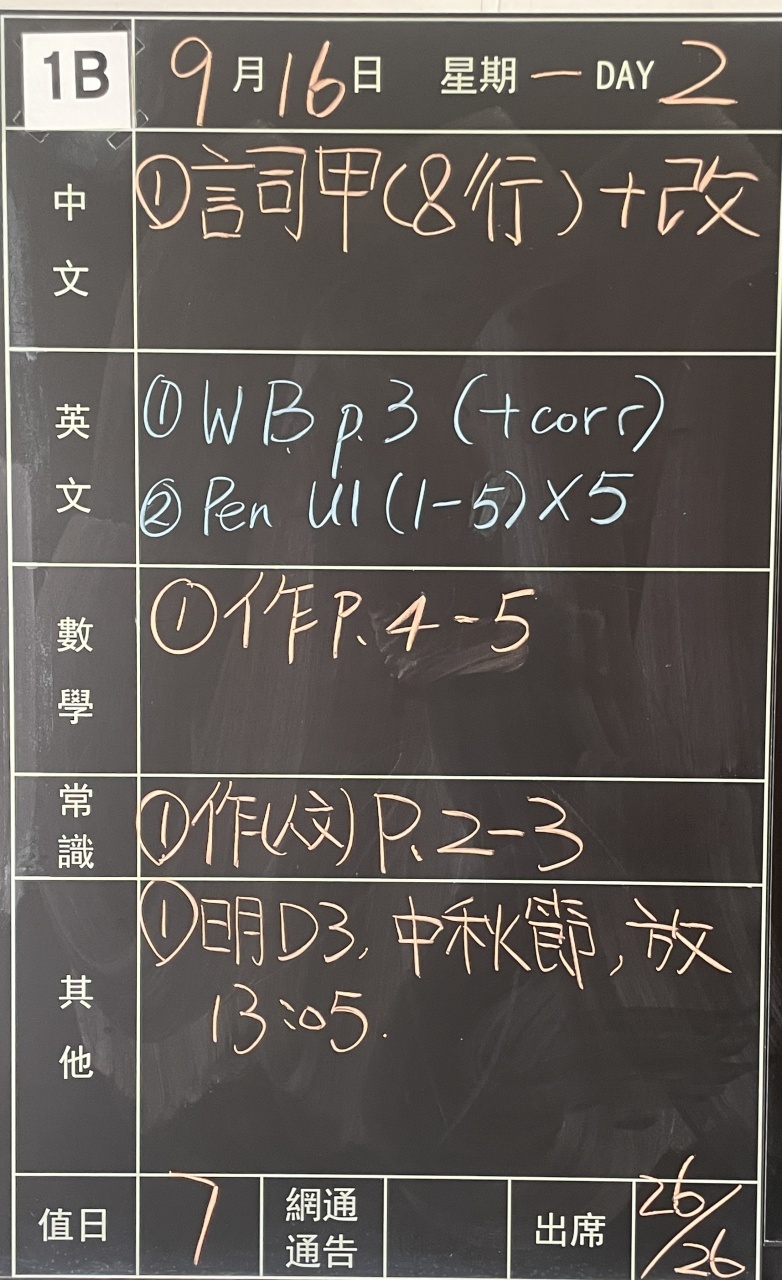 1B 9月16日 星期一 DAY 2
中文
①詞甲(8行)+改
英文
①WB p.3 (+corr)
②Pen U1 (1-5)×5
數學
①作P.4-5
常識
①作(人文)P.2-3
其他
①明D3,中秋節,放
13:05.
值日 7 網通通告 出席 26/26